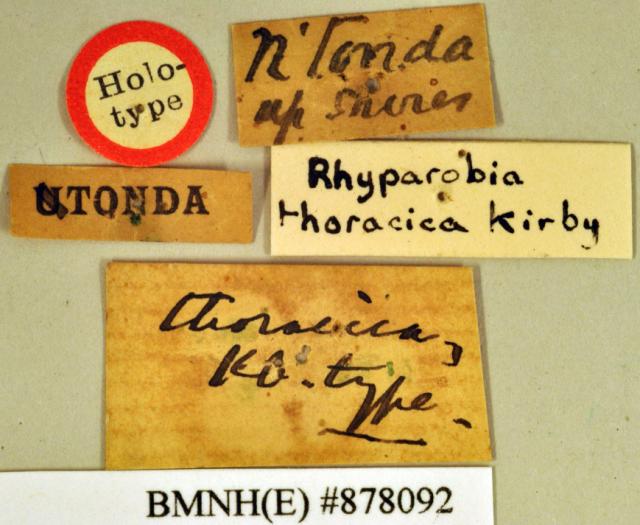 Holo-
type
N'Tonda
up Shires
UTONDA
Rhyparobia
thoracica Kirby
thoracica,
Kb. type.
BMNH(E) #878092